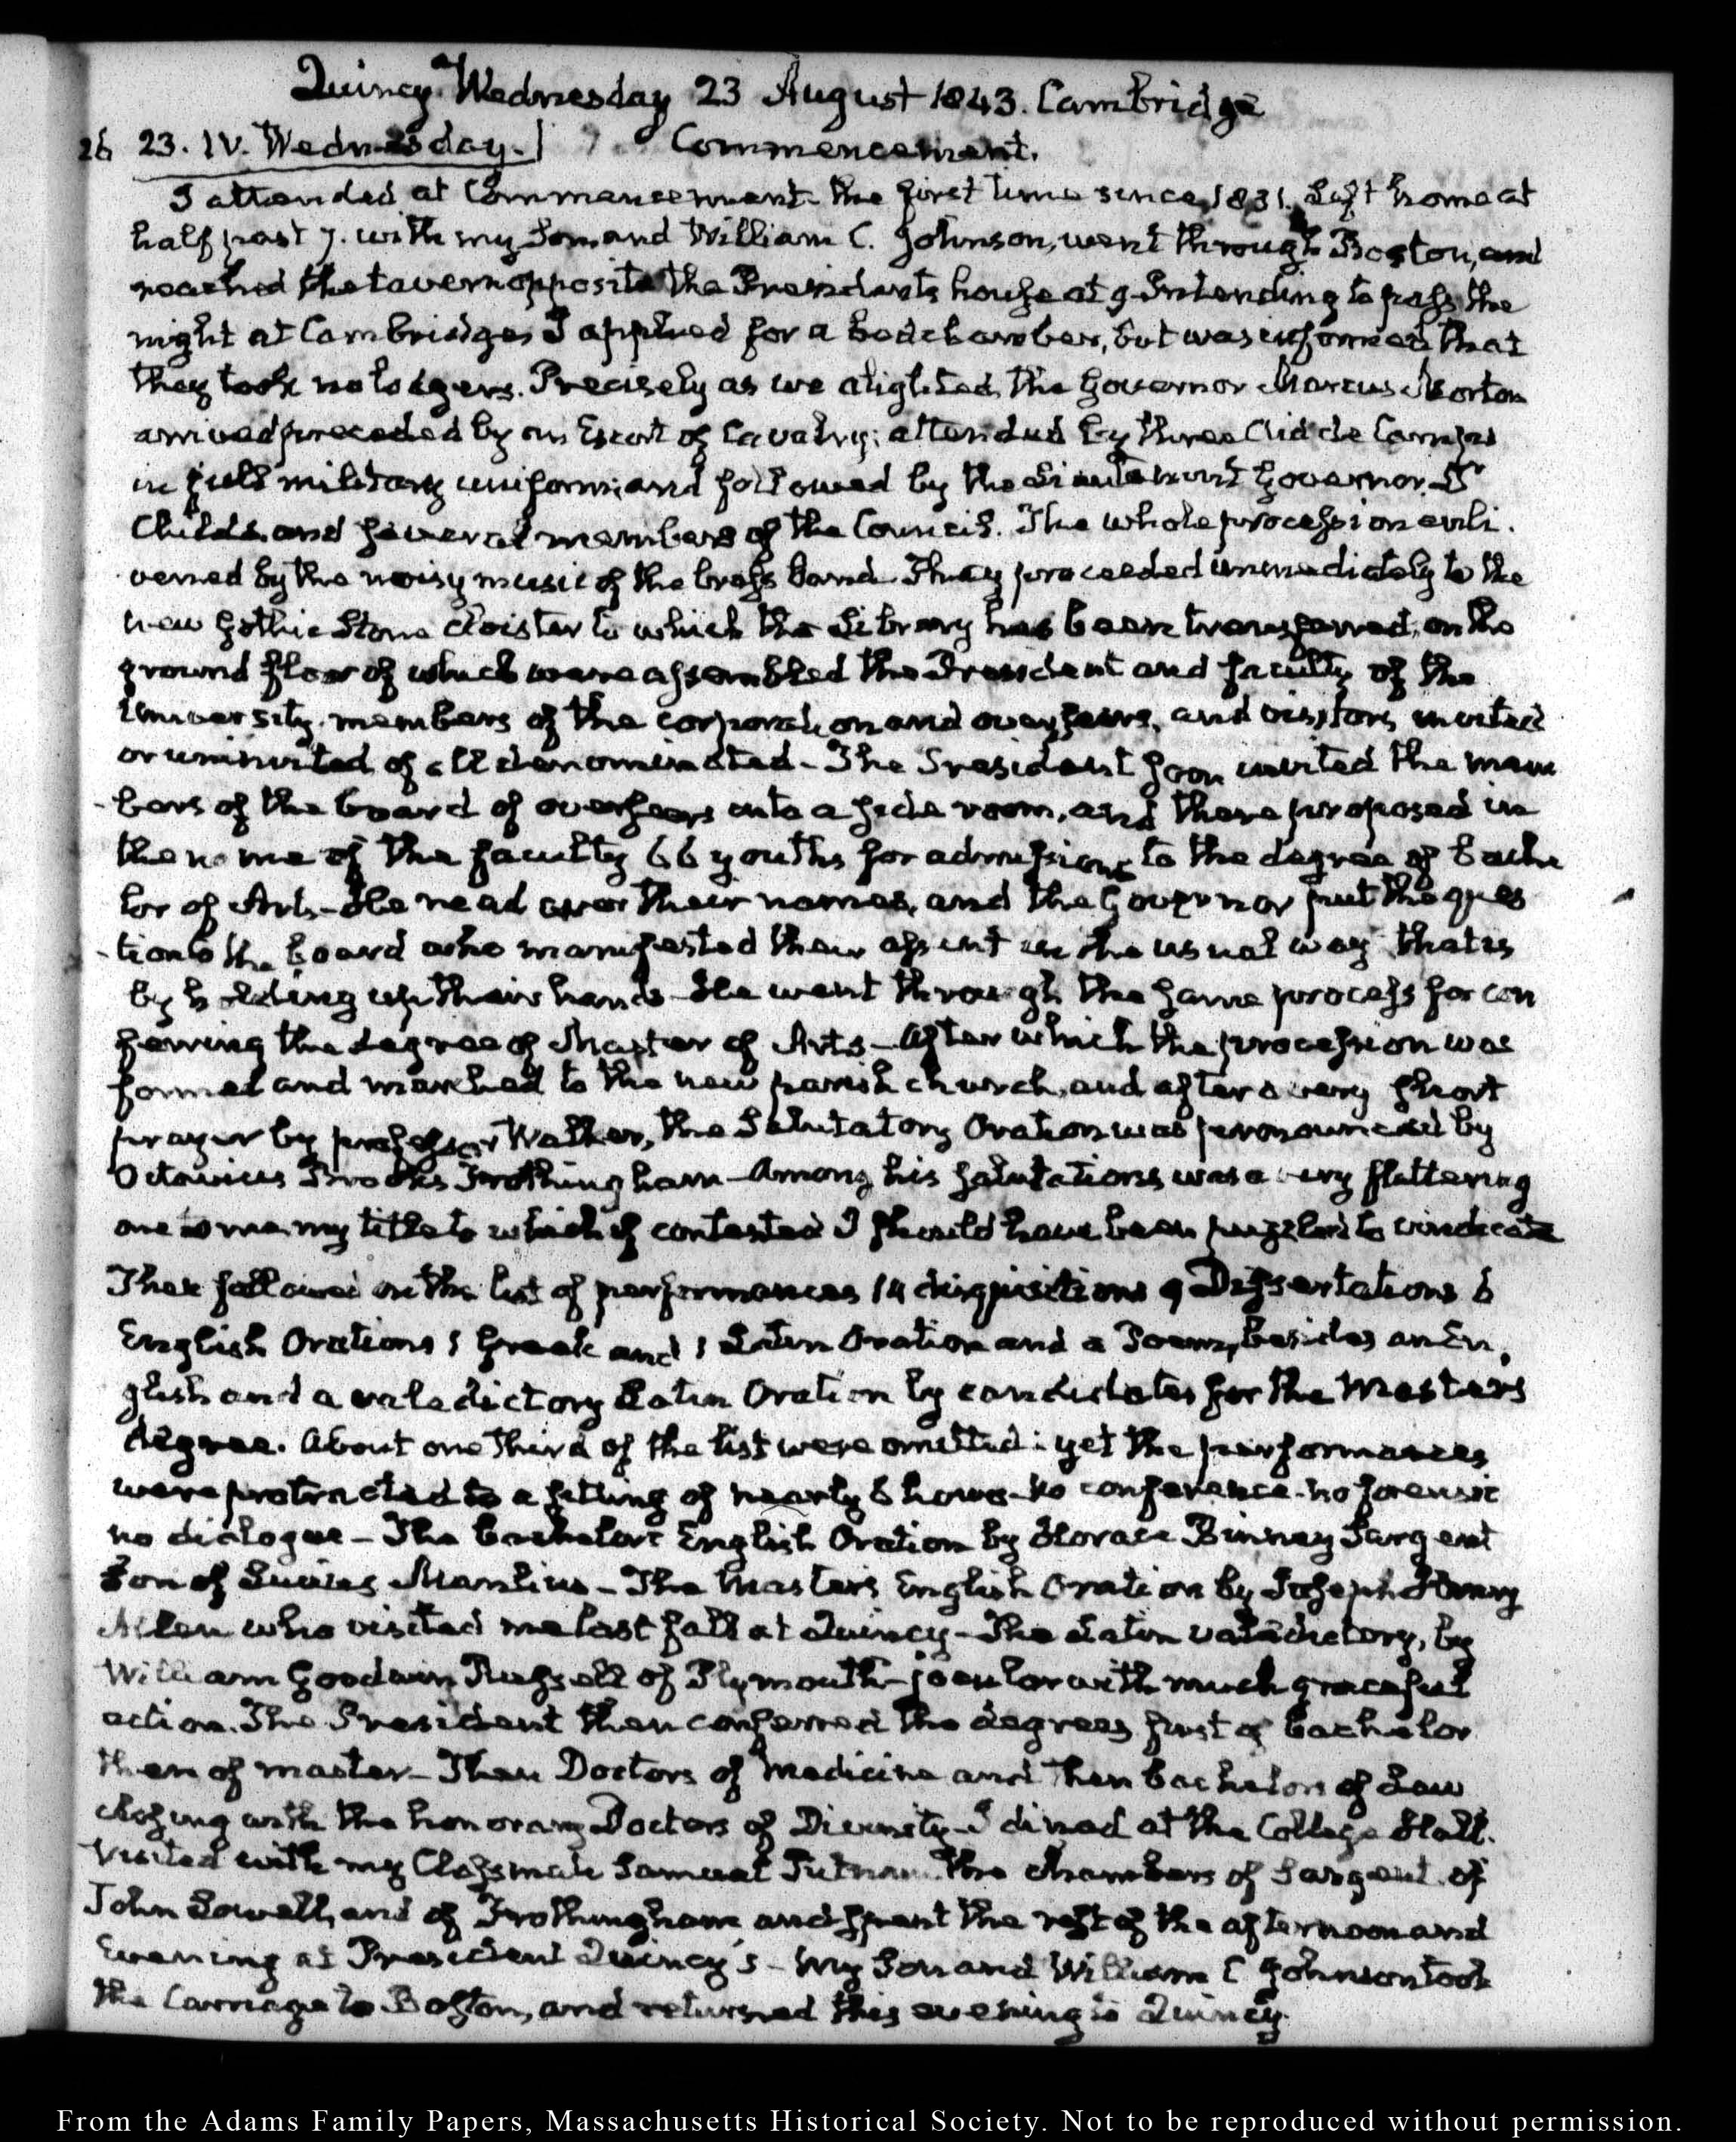 Quincy Wednesday 23 August 1843. Cambridge
26 23. IV. Wednesday. Commencement.
I attended at Commencement the first time since 1831. Left home at
half past 7. with my Son and William C. Johnson, went through Boston, and
reached the tavern opposite the Presidents house at 9. Intending to pass the
night at Cambridge, I applied for a bedchamber, but was informed that
they took no lodgers. Precisely as we alighted, the Governor Marcus Morton
arrived preceded by an Escort of Cavalry; attended by three Aid de Camps
in full military uniform; and followed by the Lieutenant Governor, Dr
Childs, and several members of the Council. The whole procession enli-
vened by the noisy music of the brass band. They proceeded immediately to the
new Gothic Stone cloister to which the Library has been transferred, on the
ground floor of which were assembled the President and faculty of the
University, members of the corporation and overseers, and visitors invited
or uninvited of all denominated - The President soon invited the mem
-bers of the board of overseers into a side room, and there proposed in
the name of the faculty 66 youths for admission to the degree of Bache
lor of Arts - He read over their names, and the Governor put the ques
-tion to the board who manifested their assent in the usual way that is
by holding up their hands - He went through the same process for con
ferring the degree of Master of Arts - After which the procession was
formed and marched to the new parish church, and after a very short
prayer by professor Walker, the Salutatory Oration was pronounced by
Octavius Brooks Frothingham - Among his salutations was a very flattering
one to me, my title to which if contested I should have been puzzled to vindicate
Then followed on the list of performances 14 disquisitions 9 Dissertations 6
English Orations 1 Greek and 1 Latin Oration and a Poem, besides an En,
glish and a valedictory Latin Oration by candidates for the Masters
degree. About one third of the list were omitted: yet the performances
were protracted to a sitting of nearly 6 hours - no conference - no forensic
no dialogue - The bachelors English Oration by Horace Binney Sargent
Son of Lucius Manlius - The Masters English Oration by Joseph Henry
Allen who visited me last fall at Quincy - The Latin valedictory, by
William Goodwin Russell of Plymouth - jocular with much graceful
action. The President then conferred the degrees first of bachelor
then of master - Then Doctors of Medicine and then bachelors of Law
closing with the honorary Doctors of Divinity - I dined at the College Hall.
Visited with my Classmate Samuel Putnam the chambers of Sargent, of
John Lowell, and of Frothingham, and spent the rest of the afternoon and
Evening at President Quincy's - My Son and William C Johnson took
the Carriage to Boston, and returned this evening to Quincy.
From the Adams Family Papers, Massachusetts Historical Society. Not to be reproduced without permission.